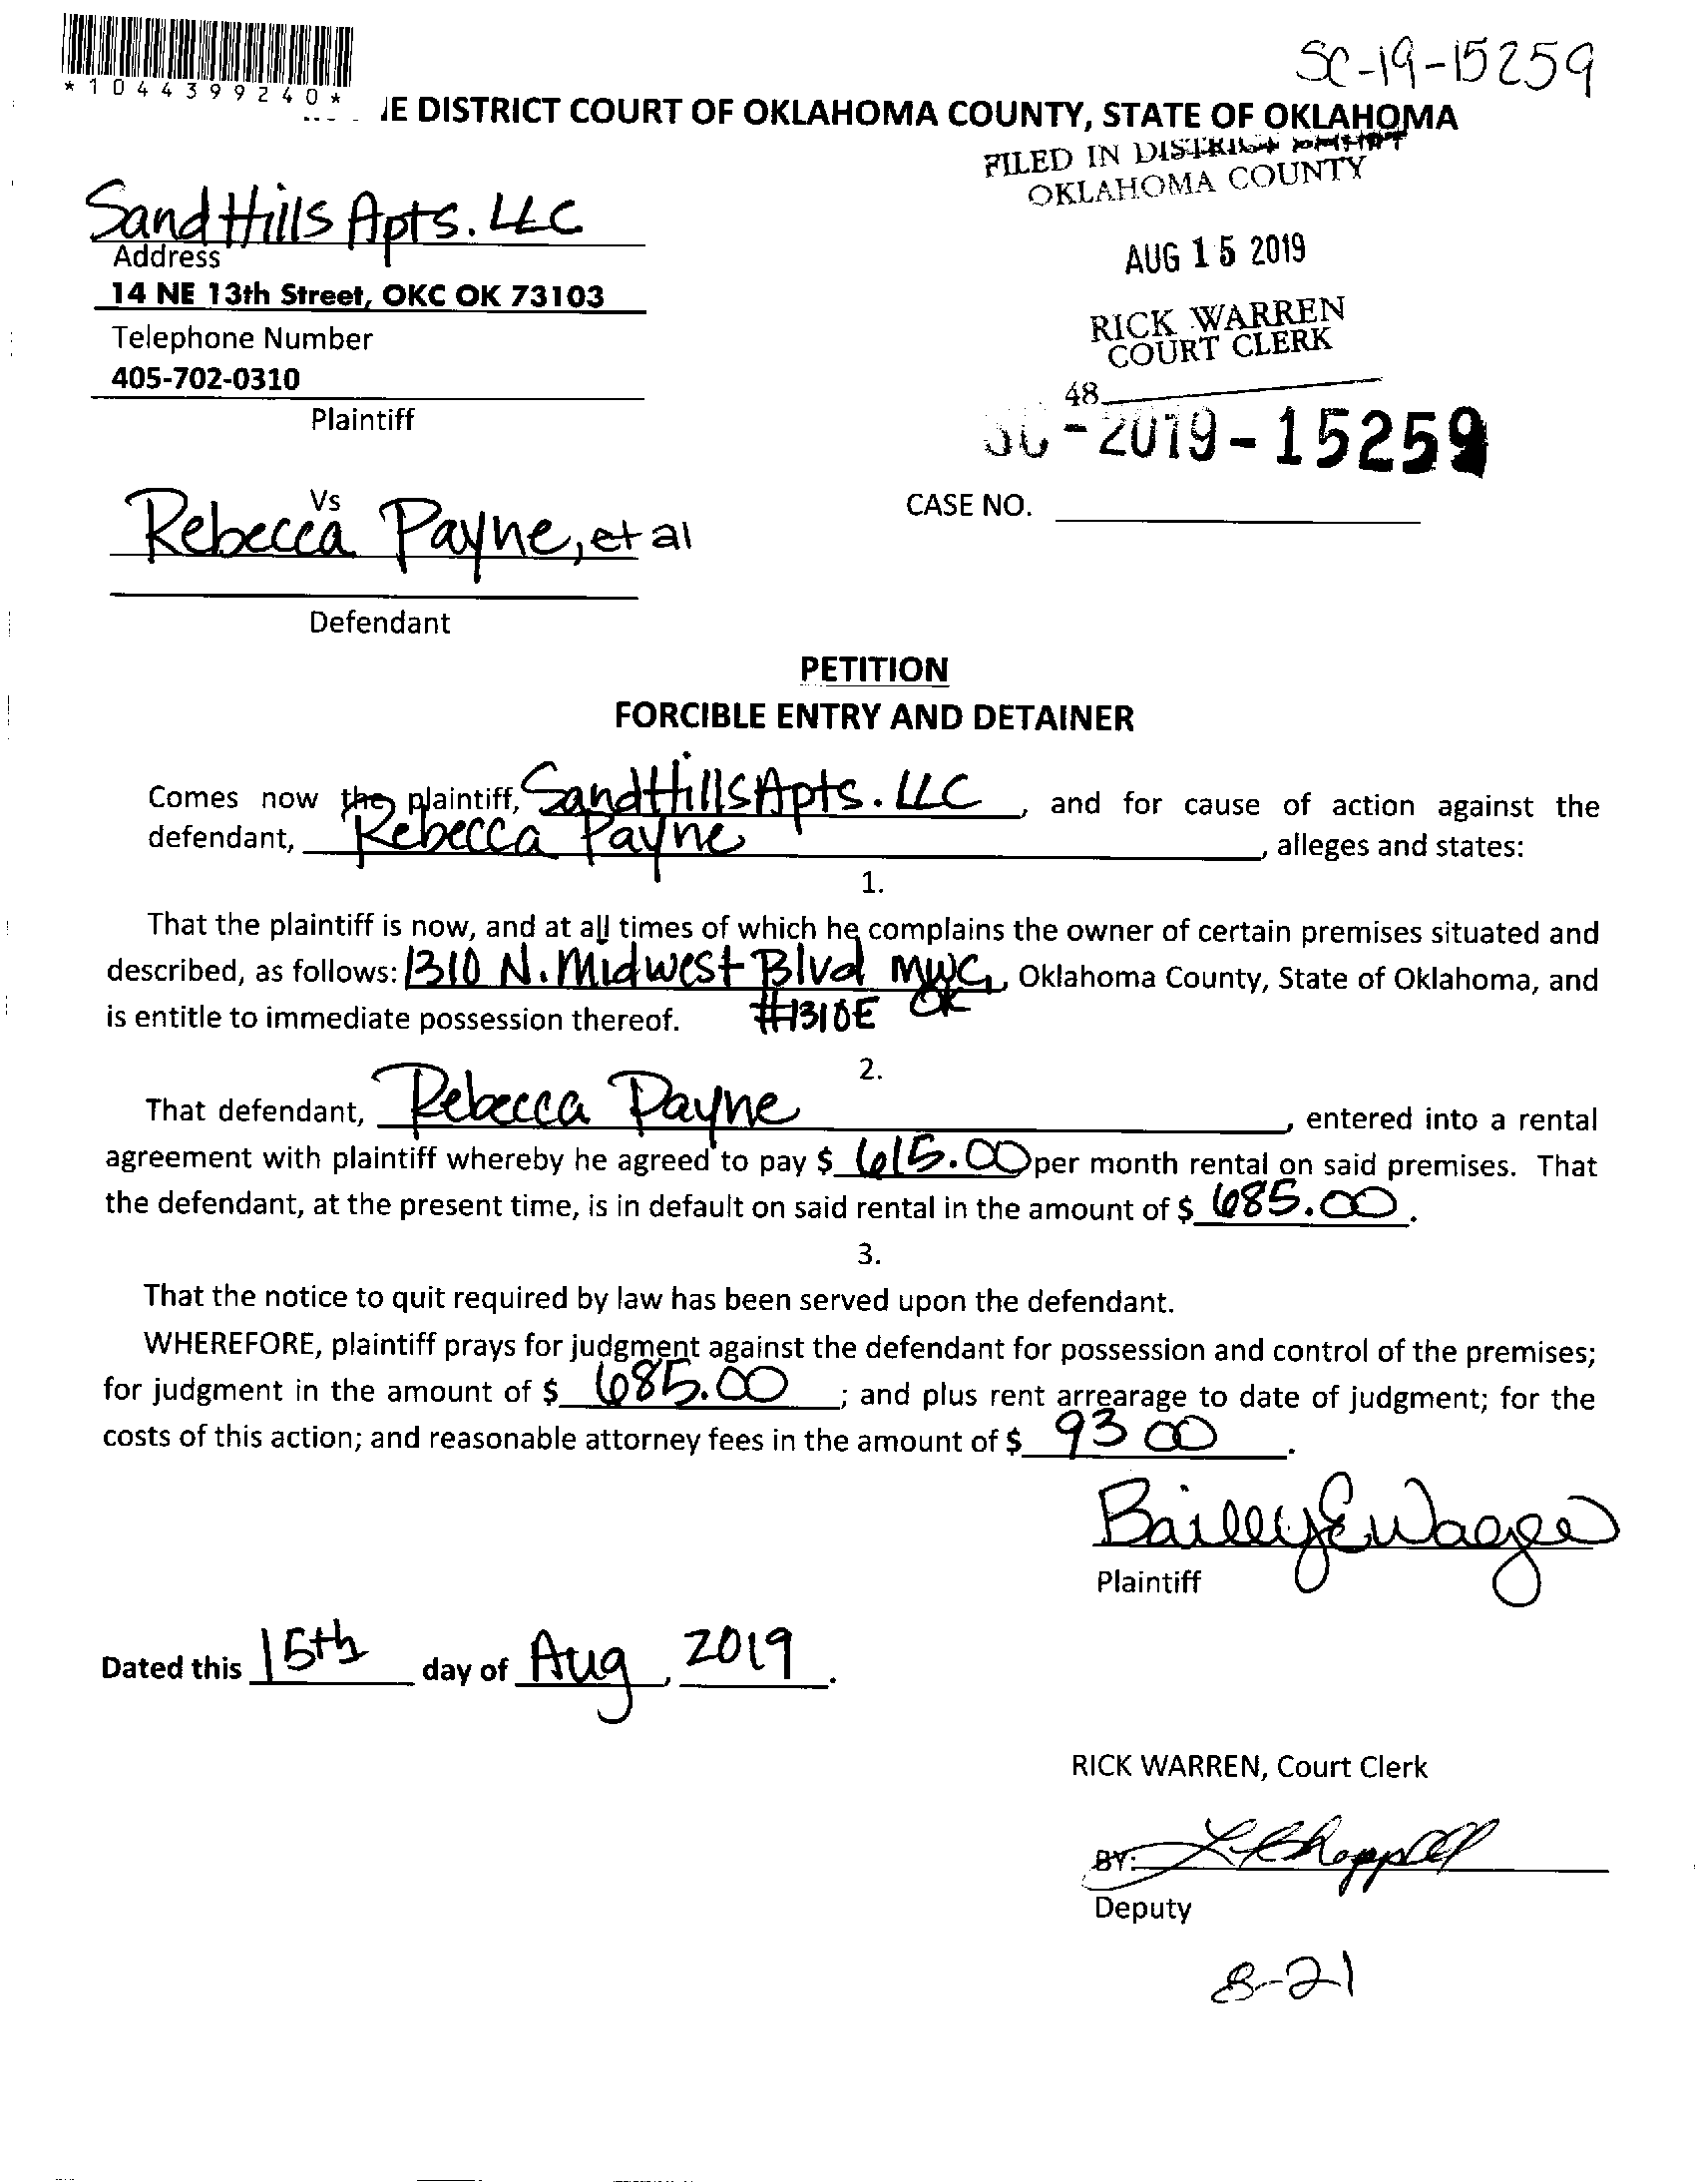 SC-19-15259
*1044399240*
IE DISTRICT COURT OF OKLAHOMA COUNTY, STATE OF OKLAHOMA
FILED IN DISTRICT COURT
OKLAHOMA COUNTY
Sand Hills Apts. LLC
Address
14 NE 13th Street, OKC OK 73103
Telephone Number
405-702-0310
Plaintiff
AUG 15 2019
RICK WARREN
COURT CLERK
48
SC-2019-15259
Vs
Rebecca Payne, et al
CASE NO.
Defendant
PETITION
FORCIBLE ENTRY AND DETAINER
Comes now the plaintiff, Sand Hills Apts. LLC, and for cause of action against the
defendant, Rebecca Payne, alleges and states:
1.
That the plaintiff is now, and at all times of which he complains the owner of certain premises situated and
described, as follows: 1310 N. Midwest Blvd MWC, Oklahoma County, State of Oklahoma, and
is entitle to immediate possession thereof. #1310E OK
2.
That defendant, Rebecca Payne, entered into a rental
agreement with plaintiff whereby he agreed to pay $ 615.00 per month rental on said premises. That
the defendant, at the present time, is in default on said rental in the amount of $ 685.00.
3.
That the notice to quit required by law has been served upon the defendant.
WHEREFORE, plaintiff prays for judgment against the defendant for possession and control of the premises;
for judgment in the amount of $ 685.00; and plus rent arrearage to date of judgment; for the
costs of this action; and reasonable attorney fees in the amount of $ 93 00.
Bailey E Wag
Plaintiff
Dated this 15th day of Aug, 2019.
RICK WARREN, Court Clerk
BY: L Chappell
Deputy
8-21